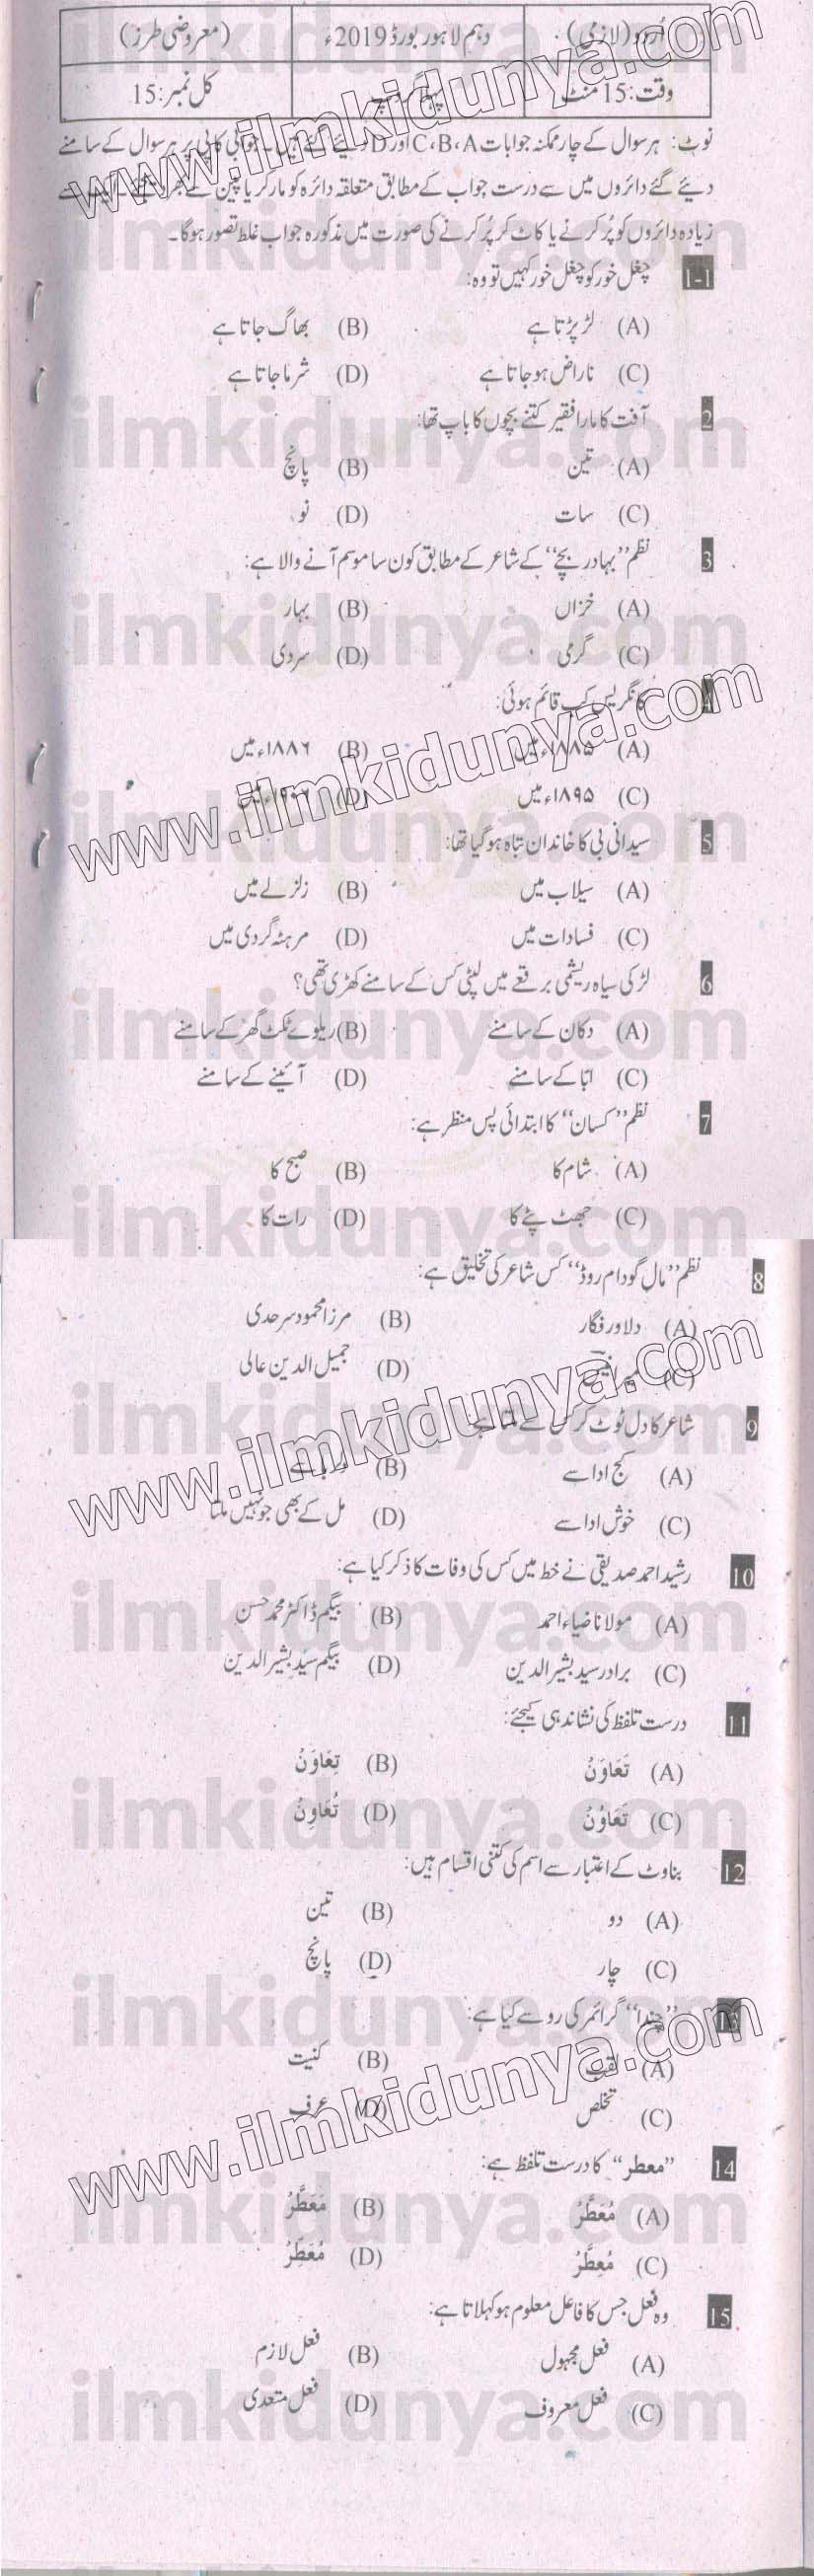 اُردو (لازمی) دہم لاہور بورڈ 2019ء (معروضی طرز)
وقت: 15 منٹ پہلا گروپ کل نمبر: 15
نوٹ: ہر سوال کے چار ممکنہ جوابات C، B، A اور D دیئے گئے ہیں۔ جوابی کاپی پر ہر سوال کے سامنے
دیئے گئے دائروں میں سے درست جواب کے مطابق متعلقہ دائرہ کو مارکر یا پین سے بھر دیجئے۔ ایک سے
زیادہ دائروں کو پُر کرنے یا کاٹ کر پُر کرنے کی صورت میں مذکورہ جواب غلط تصور ہوگا۔
1-1 چغل خور کو چغل خور کہیں تو وہ:
(A) لڑ پڑتا ہے (B) بھاگ جاتا ہے
(C) ناراض ہو جاتا ہے (D) شرما جاتا ہے
2 آفت کا مارا فقیر کتنے بچوں کا باپ تھا:
(A) تین (B) پانچ
(C) سات (D) نو
3 نظم ”بہادر بچے“ کے شاعر کے مطابق کون سا موسم آنے والا ہے:
(A) خزاں (B) بہار
(C) گرمی (D) سردی
4 کانگریس کب قائم ہوئی:
(A) ۱۸۸۵ء میں (B) ۱۸۸۶ء میں
(C) ۱۸۹۵ء میں (D) میں
5 سیدانی بی کا خاندان تباہ ہو گیا تھا:
(A) سیلاب میں (B) زلزلے میں
(C) فسادات میں (D) مرہٹہ گردی میں
6 لڑکی سیاہ ریشمی برقعے میں لپٹی کس کے سامنے کھڑی تھی؟
(A) دکان کے سامنے (B) ریلوے ٹکٹ گھر کے سامنے
(C) ابّا کے سامنے (D) آئینے کے سامنے
7 نظم ”کسان“ کا ابتدائی پس منظر ہے:
(A) شام کا (B) صبح کا
(C) جھٹ پٹے کا (D) رات کا
8 نظم ”مال گودام روڈ“ کس شاعر کی تخلیق ہے:
(A) دلاور فگار (B) مرزا محمود سرحدی
(C) میر انیسؔ (D) جمیل الدین عالی
9 شاعر کا دل ٹوٹ کر کس سے ملتا ہے:
(A) کج ادا سے (B) سے
(C) خوش ادا سے (D) مل کے بھی جو نہیں ملتا
10 رشید احمد صدیقی نے خط میں کس کی وفات کا ذکر کیا ہے:
(A) مولانا ضیاء احمد (B) بیگم ڈاکٹر محمد حسن
(C) برادر سید بشیر الدین (D) بیگم سیّد بشیر الدین
11 درست تلفظ کی نشاندہی کیجئے:
(A) تَعَاوَنُ (B) تِعَاوَنُ
(C) تَعَاوُنُ (D) تُعَاوِنُ
12 بناوٹ کے اعتبار سے اسم کی کتنی اقسام ہیں:
(A) دو (B) تین
(C) چار (D) پانچ
13 ”چندا“ گرائمر کی رو سے کیا ہے:
(A) لقب (B) کنیت
(C) تخلص (D) عرف
14 ”معطر“ کا درست تلفظ ہے:
(A) مُعَطَّرُ (B) مَعَطَّرُ
(C) مُعِطَّرُ (D) مُعَطِّرُ
15 وہ فعل جس کا فاعل معلوم ہو کہلاتا ہے:
(A) فعل مجہول (B) فعل لازم
(C) فعل معروف (D) فعل متعدی
www.ilmkidunya.com
www.ilmkidunya.com
www.ilmkidunya.com
www.ilmkidunya.com
ilmkidunya.com